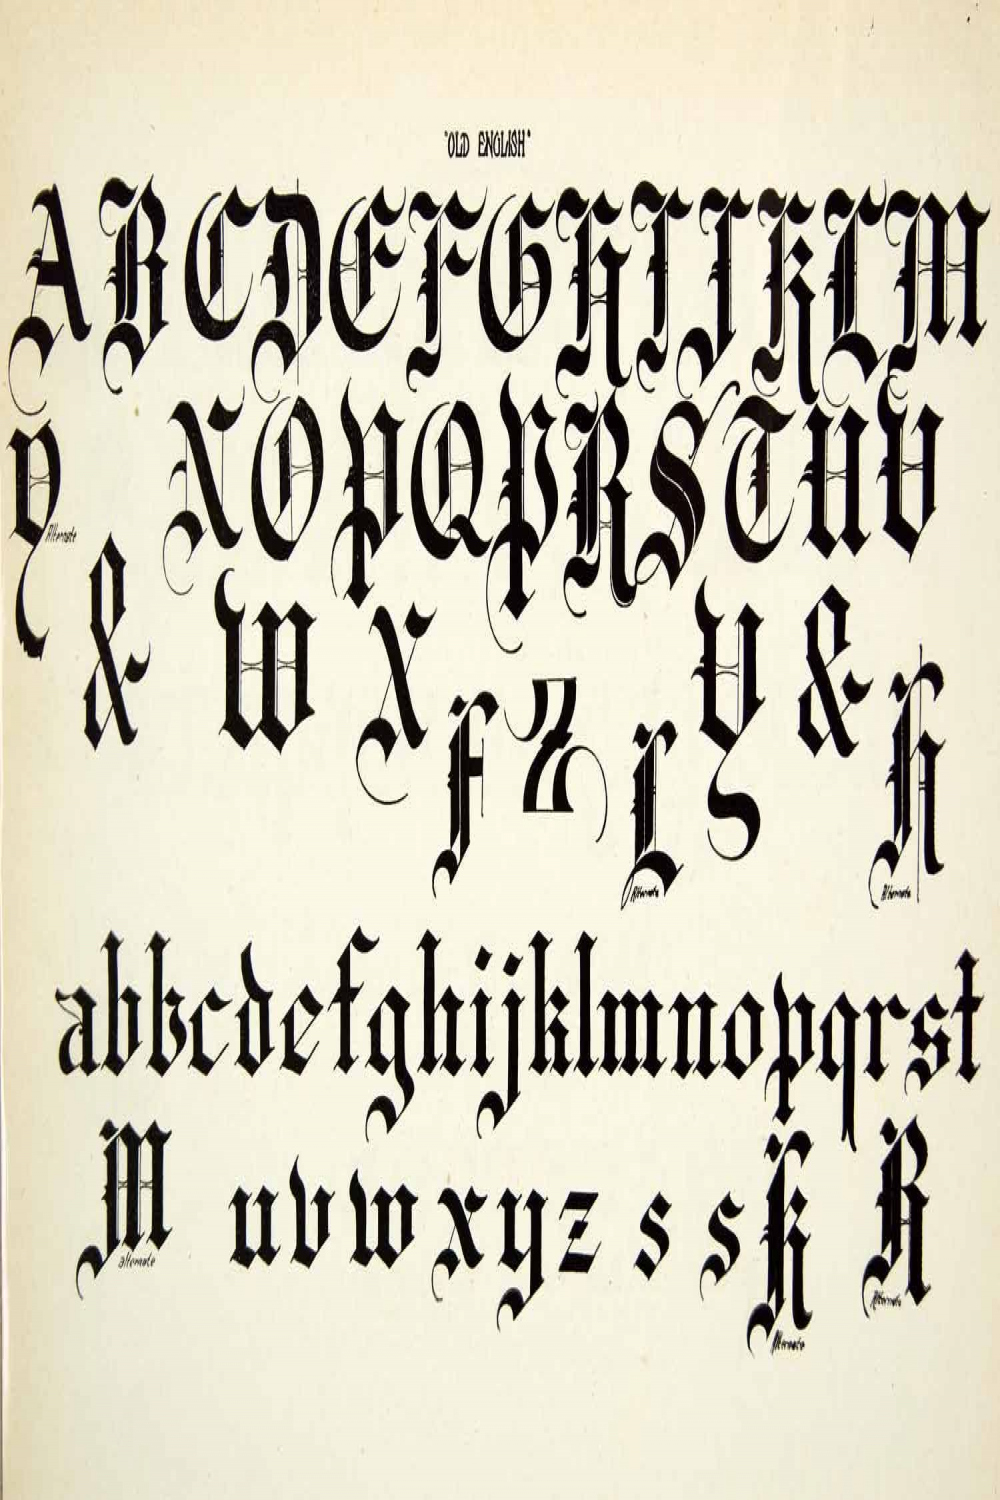 "OLD ENGLISH"
A B C D E F G H I J K L M
Y N O P Q P R S T U V
Alternate
& W X Y &
F Z L H
Alternate Alternate
a b b c d e f g h i j k l m n o p q r s t
M u v w x y z s s K R
alternate Alternate
Alternate